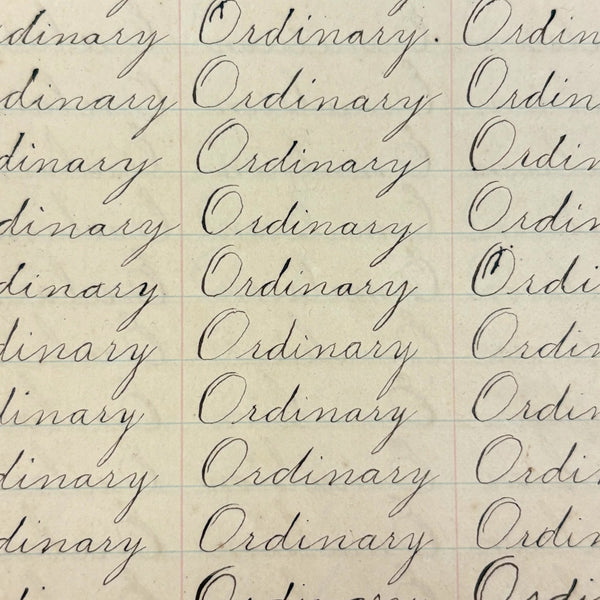 dinary Ordinary. Ordin
dinary Ordinary Ordin
dinary Ordinary Ordin
dinary Ordinary Ordin
dinary Ordinary Ordi
dinary Ordinary Ordin
dinary Ordinary Ordin
dinary Ordinary Ordi
dinary Ordinary Ordin